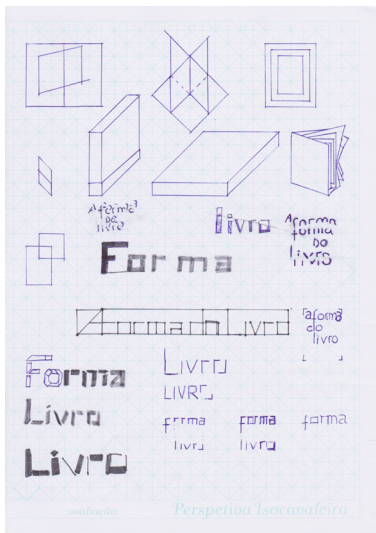 A forma
DO
livro
livro
A forma
forma
DO
livro
Forma
A Forma do Livro
a forma
do
livro
Forma
Livro
LIVRO
Livro
Livro
LIVRO
forma
livro
forma
livro
forma
avaliação
Perspetiva Isocavaleira